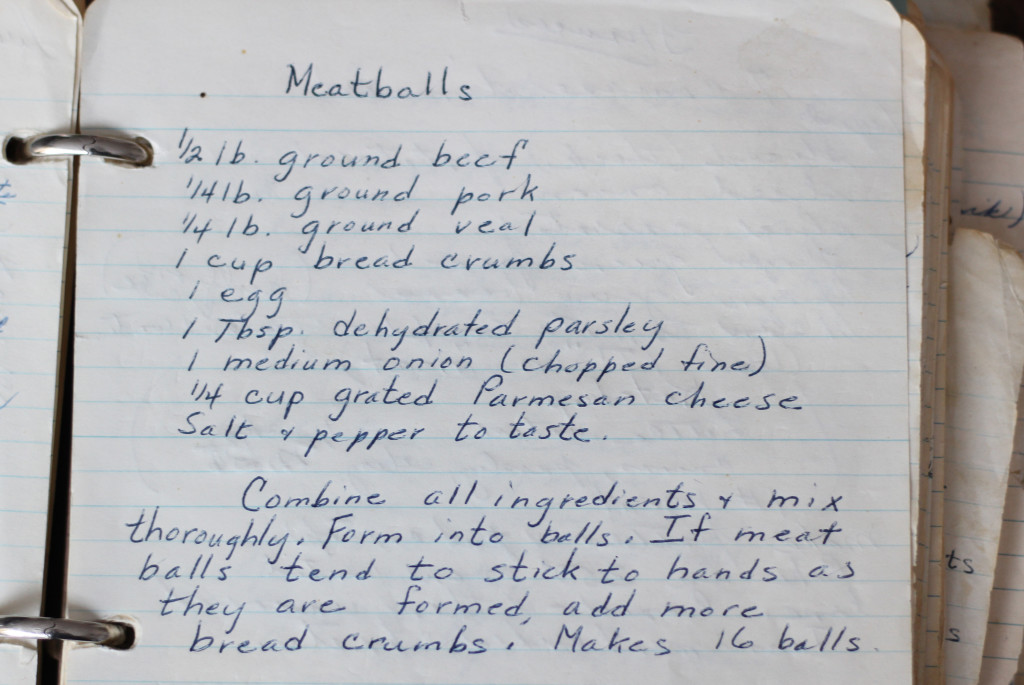 Meatballs
1/2 lb. ground beef
1/4 lb. ground pork
1/4 lb. ground veal
1 cup bread crumbs
1 egg
1 Tbsp. dehydrated parsley
1 medium onion (chopped fine)
1/4 cup grated Parmesan cheese
Salt & pepper to taste.
Combine all ingredients & mix
thoroughly. Form into balls. If meat
balls tend to stick to hands as
they are formed, add more
bread crumbs. Makes 16 balls.
ts
s